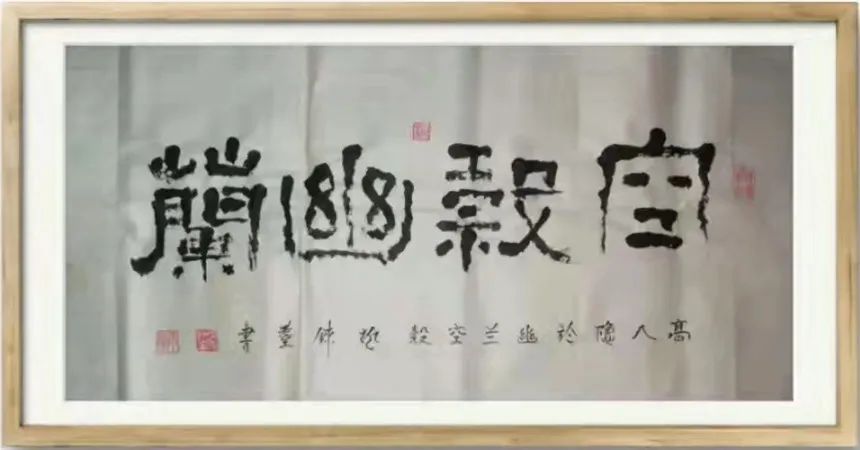 空穀幽蘭
高人隱於幽兰空穀 書